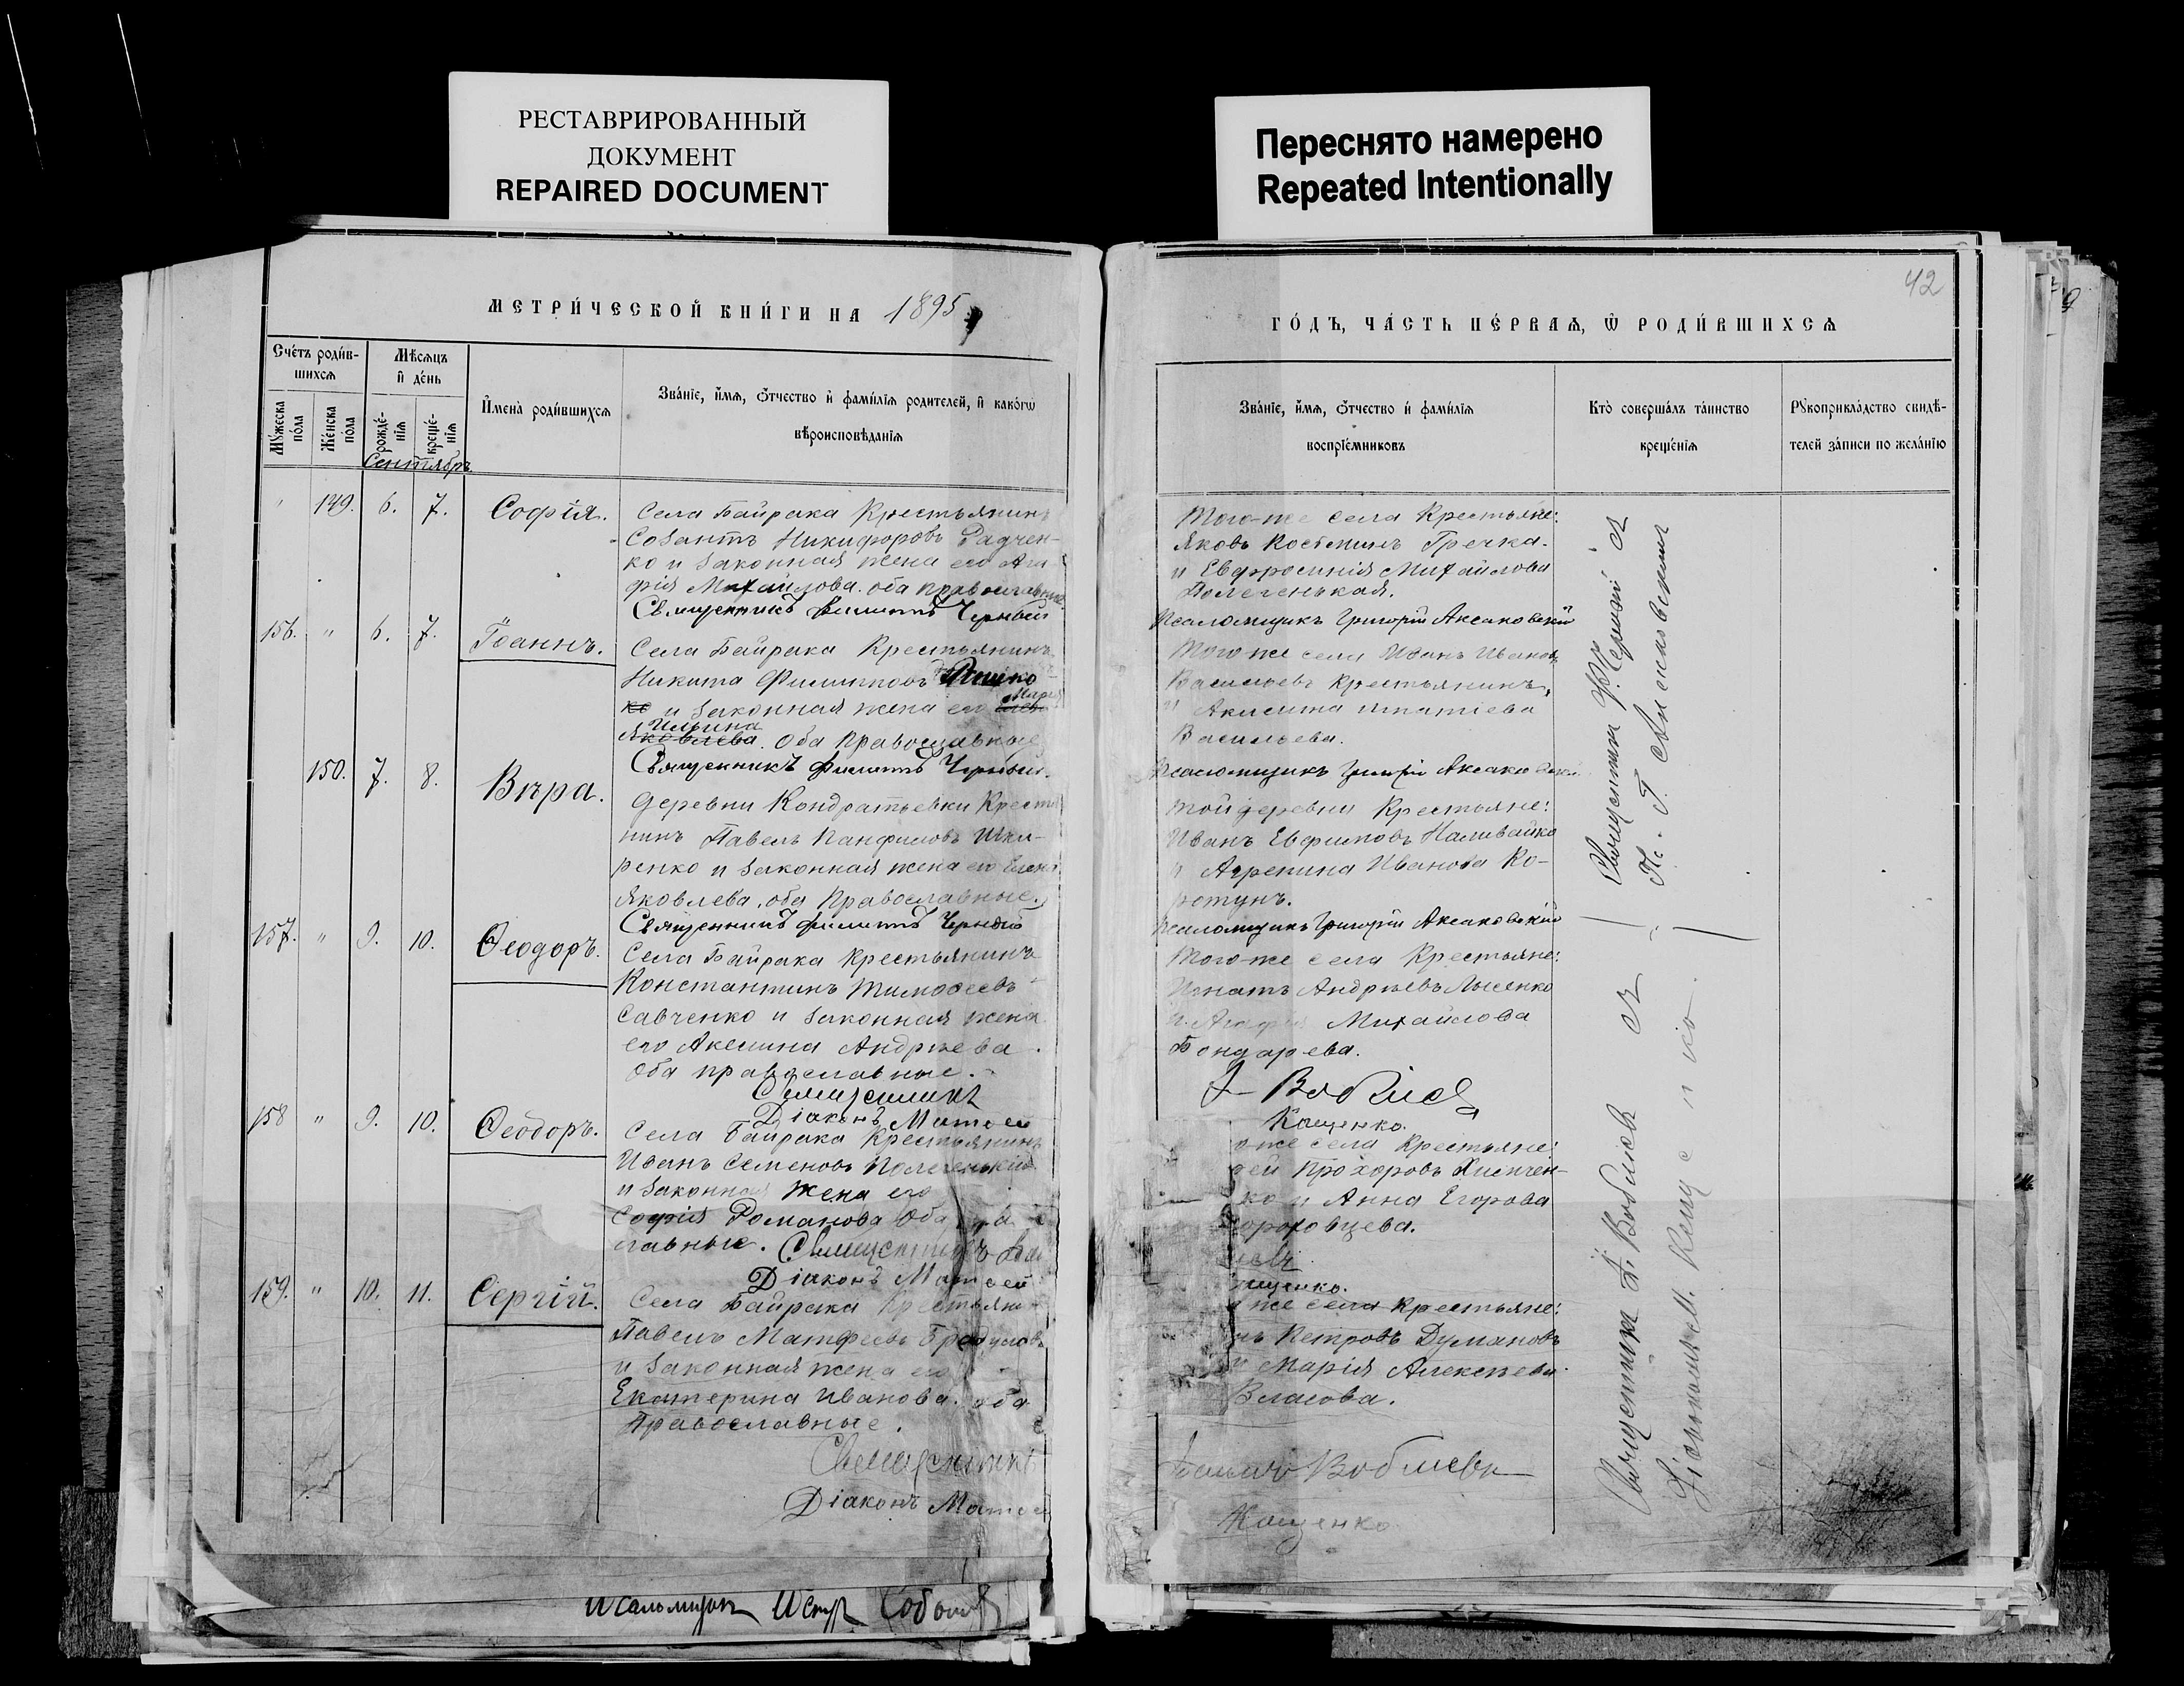 РЕСТАВРИРОВАННЫЙ
ДОКУМЕНТ
REPAIRED DOCUMENT
Переснято намерено
Repeated Intentionally
МЕТРИ́ЧЕСКОЙ КНИ́ГИ НА 1895
Сче́тъ роди́в-
шихсѧ
Мѣсѧцъ
и҆ де́нь
Мꙋ́жеска
по́ла
Же́нска
по́ла
рожде́-
нїѧ
креще́-
нїѧ
И҆мена̀ роди́вшихсѧ
Зва́нїе, и҆́мѧ, ѻ҆́тчество и҆ фами́лїѧ родителей, и҆ како́гѡ
вѣроисповѣ́данїѧ
Сентябрь
149. 6. 7. Софія.
Села Байрака Крестьянинъ
Созантъ Никифоровъ Радчен-
ко и законная жена его
фія Михайлова. оба православные.
Священникъ Филиппъ Черный
156. " 6. 7. Іоаннъ.
Села Байрака Крестьянинъ
Никита Филипповъ
ко и законная жена его
Мария
Ильина
Яковлева. Оба Православные
Священникъ Филиппъ Черный.
150. 7. 8. Вѣра.
Деревни Кондратьевки Кресть
нинъ Павелъ Панфиловъ Шки-
ренко и законная жена его Елена
Яковлева, оба Православные.
Священникъ Филиппъ Черный
157. " 9. 10. Ѳеодоръ.
Села Байрака Крестьянинъ
Константинъ Тимоѳеевъ
Савченко и законная жена
его Акилина Андрѣева.
Оба православные.
Священникъ
Діаконъ Матѳей
158 " 9. 10. Ѳеодоръ.
Села Байрака Крестьянинъ
Иванъ Семеновъ Полегенькій
и законная жена его
Софія Романова Оба
славные. Священникъ
Діаконъ Матѳей
159. " 10. 11. Сергій.
Села Байрака Крестьян
Павелъ Матфеевъ
и законная жена его
Екатерина Иванова. оба
Православные.
Священникъ
Діаконъ Матѳей
42
ГО́ДЪ, ЧА́СТЬ ПЕ́РВАѦ, Ѡ҆ РОДИ́ВШИХСѦ
Зва́нїе, и҆́мѧ, ѻ҆́тчество и҆ фами́лїѧ
воспрїе́мниковъ
Кто̀ соверша́лъ та́инство
креще́нїѧ
Рꙋкоприкла́дство свидѣ́-
телей за́писи по жела́нїю
Того-же села Крестьяне:
Яковъ Костинъ Гречка.
и Евфросинія Михайлова
Полегенькая.
Псаломщикъ Григорій Аксаковскій
Того же села Иванъ Ивановъ
Васильевъ крестьянинъ,
и Акилина Игнатіева
Васильева.
Псаломщикъ Григорій Аксаковскій
Той деревни Крестьяне:
Иванъ Евфимовъ Наливайко
и Агрепина Иванова Ко-
ротунъ.
Псаломщикъ Григорій Аксаковскій
Того-же села Крестьяне:
Игнатъ Андрѣевъ Лысенко
и Агафія Михайлова
Бондарева.
Кащенко.
оже села Крестьяне:
сей Прохоровъ Хилчен-
ко и Анна Егорова
ороховцева.
щенко.
же села Крестьяне:
Петровъ Думановъ
и Марія Алексѣева
Власова.
Воблиевъ
Кащенко
Священникъ Ф. Черный съ
Пс. Г. Аксаковскимъ
Священникъ В. Воблиевъ съ
Діакономъ М. Кащенко.